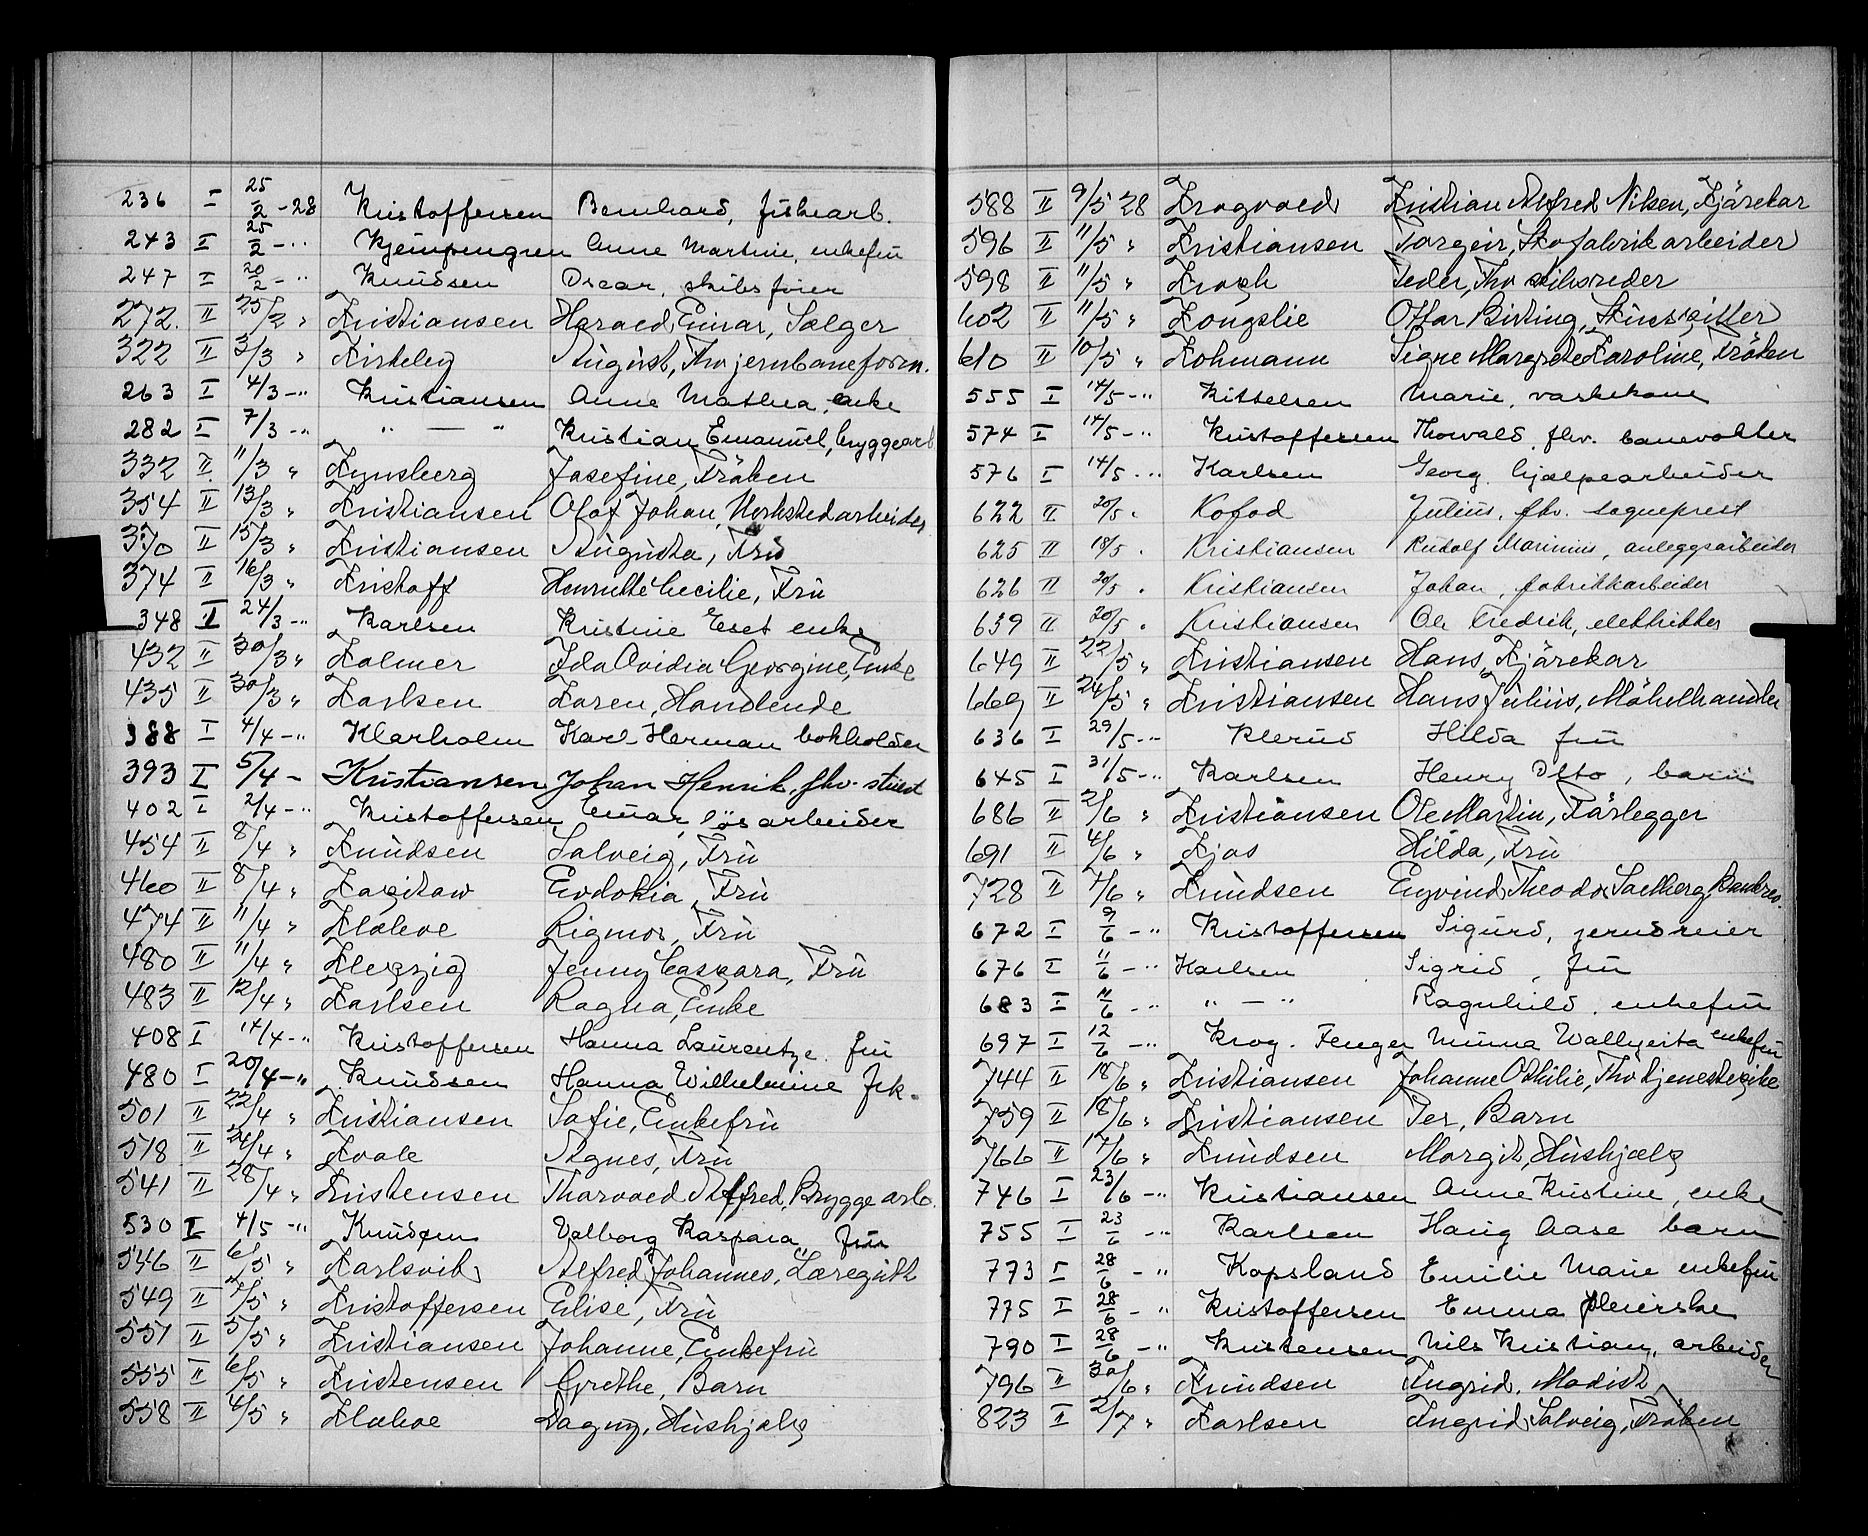 236 I 25/2 -28 Kristoffersen Bernhard, fiskearb.
243 I 25/2 - " Kjempengren Anne Martine, enkefru
247 I 20/2 - " Knudsen Oscar, skibsfører
272. II 25/2 " Kristiansen Harald Einar, Sælger
322 II 3/3 " Kirkeby August, Fhv jernbaneform.
263 I 4/3 - " Kristiansen Anne Mathea, enke
282 I 7/3 - " " — " Kristian Emanuel, bryggearb
332 II 11/3 " Kynsberg Josefine, Frøken
354 II 13/3 " Kristiansen Olaf Johan, Verkstedarbeider
370 II 15/3 " Kristiansen Augusta, Fru
374 II 16/3 " Kristoff Henriette Cecilie, Fru
348 I 24/3 - " Karlsen Kristine Eset enke
432 II 30/3 " Kolmer Ida Ovidia Georgine, Enke
435 II 30/3 " Karlsen Karen, Handlende
388 I 4/4 - " Klarholm Karl Herman bokholder
393 I 5/4 - Kristiansen Johan Henrik, fhv. stuert
402 I 2/4 - " Kristoffersen Einar, løsarbeider
454 II 8/4 " Knudsen Solveig, Fru
460 II 8/4 " Evdokia, Fru
474 II 11/4 " Klokve Rigmor, Fru
480 II 11/4 " Jenny Caspara, Fru
483 II 12/4 " Karlsen Ragna, Enke
408 I 14/4 - " Kristoffersen Hanna Laurentze. fru
480 I 20/4 - " Knudsen Hanna Wilhelmine frk.
501 II 22/4 " Kristiansen Sofie, Enkefru
518 II 24/4 " Kvale Agnes, Fru
541 II 28/4 " Kristensen Thorvald Alfred, Bryggearb.
530 I 4/5 - " Knudsen Valborg Kaspara, fru
546 II 6/5 " Karlsvik Alfred Johannes, Læregutt
549 II 7/5 " Kristoffersen Elise, Fru
551 II 5/5 " Kristiansen Johanne, Enkefru
555 II 6/5 " Kristensen Grethe, Barn
558 II 4/5 " Klokve Dagny, Hushjælp
588 II 9/5 28 Krogvold Kristian Alfred Nilsen, Kjørekar
596 II 11/5 " Kristiansen Torgeir, Skofabrikarbeider
598 II 11/5 " Krogh Peder, Fhv skibsreder
602 II 11/5 " Kongslie Ottar Birting,
610 II 10/5 " Kohmann Signe Margrete Karoline, Frøken
555 I 14/5 - " Kittelsen Marie, vaskekone
574 I 14/5 - " Kristoffersen Thorvald, fhv. banevokter
576 I 14/5 - " Karlsen Georg. hjelpearbeider
622 II 20/5 " Kofod Julius, fhv. sogneprest
625 II 18/5 " Kristiansen Rudolf Marinius, anleggsarbeider
626 II 20/5 " Kristiansen Johan, fabrikkarbeider
639 II 20/5 " Kristiansen Ole Fredrik, elektriker
649 II 22/5 " Kristiansen Hans, Kjørekar
669 II 24/5 " Kristiansen Hans Julius, Møbelhandler
636 I 29/5 - " Klerud Hilda fru
645 I 31/5 - " Karlsen Henry Otto, barn
686 II 2/6 " Kristiansen Ole Martin, Rørlegger
691 II 4/6 " Kjos Hilda, Fru
728 II 7/6 " Knudsen Eyvind Theodor Solberg,
672 I 9/6 - " Kristoffersen Sigurd, jerndreier
676 I 11/6 - " Karlsen Sigrid, fru
683 I 11/6 - " " — " Ragnhild, enkefru
697 I 12/6 - " Krog-Fenger Minna Wallyeita enkefru
744 II 18/6 " Kristiansen Johanne Othilie, Fhv tjenestepike
759 II 18/6 " Kristiansen Per, Barn
766 II 17/6 " Knudsen Margit, Hushjælp
746 I 23/6 - " Kristiansen Anne Kristine, enke
755 I 23/6 - " Karlsen Haug Aase barn
773 I 28/6 - " Kopsland Emilie Marie enkefru
775 I 28/6 - " Kristoffersen Emma pleierske
790 I 28/6 - " Kristensen Nils Kristian, arbeider
796 II 30/6 " Knudsen Ingrid, Modist
823 II 2/7 " Karlsen Ingrid Solveig, Frøken